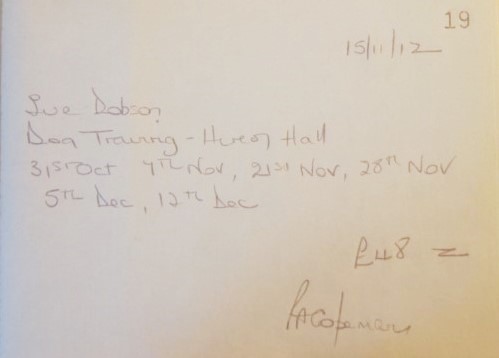 19
15/11/12
Sue Dobson
Dog Training - Hall
31st Oct 7th Nov, 21st Nov, 28th Nov
5th Dec, 12th Dec
£48 =